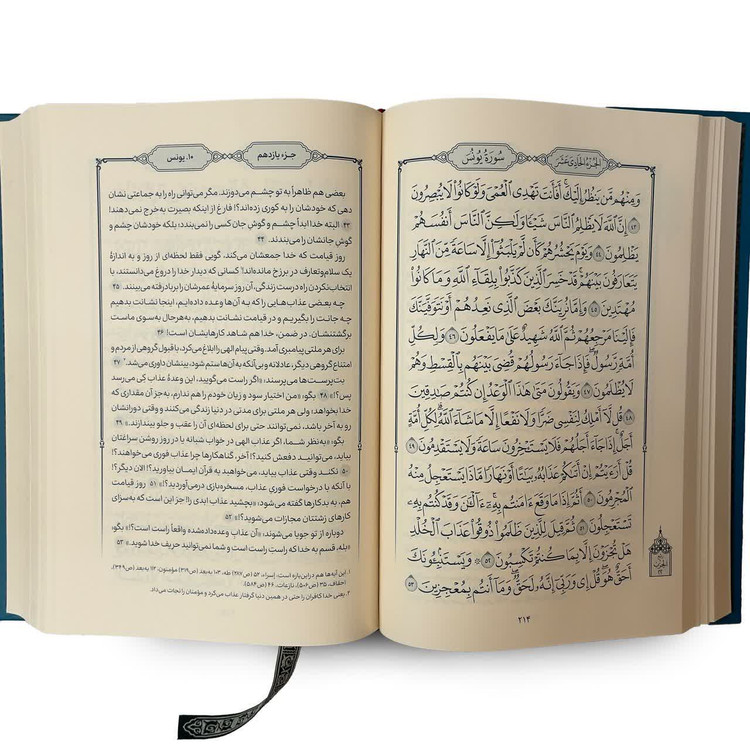 الجزء الحادی عشر
سورة یونس
وَمِنْهُم مَّن يَنظُرُ إِلَيْكَ أَفَأَنتَ تَهْدِى ٱلْعُمْىَ وَلَوْ كَانُوا۟ لَا يُبْصِرُونَ
٤٣ إِنَّ ٱللَّهَ لَا يَظْلِمُ ٱلنَّاسَ شَيْـًٔا وَلَـٰكِنَّ ٱلنَّاسَ أَنفُسَهُمْ
يَظْلِمُونَ ٤٤ وَيَوْمَ يَحْشُرُهُمْ كَأَن لَّمْ يَلْبَثُوٓا۟ إِلَّا سَاعَةً مِّنَ ٱلنَّهَارِ
يَتَعَارَفُونَ بَيْنَهُمْ قَدْ خَسِرَ ٱلَّذِينَ كَذَّبُوا۟ بِلِقَآءِ ٱللَّهِ وَمَا كَانُوا۟
مُهْتَدِينَ ٤٥ وَإِمَّا نُرِيَنَّكَ بَعْضَ ٱلَّذِى نَعِدُهُمْ أَوْ نَتَوَفَّيَنَّكَ
فَإِلَيْنَا مَرْجِعُهُمْ ثُمَّ ٱللَّهُ شَهِيدٌ عَلَىٰ مَا يَفْعَلُونَ ٤٦ وَلِكُلِّ
أُمَّةٍ رَّسُولٌ فَإِذَا جَآءَ رَسُولُهُمْ قُضِىَ بَيْنَهُم بِٱلْقِسْطِ وَهُمْ
لَا يُظْلَمُونَ ٤٧ وَيَقُولُونَ مَتَىٰ هَـٰذَا ٱلْوَعْدُ إِن كُنتُمْ صَـٰدِقِينَ
٤٨ قُل لَّآ أَمْلِكُ لِنَفْسِى ضَرًّا وَلَا نَفْعًا إِلَّا مَا شَآءَ ٱللَّهُ لِكُلِّ أُمَّةٍ
أَجَلٌ إِذَا جَآءَ أَجَلُهُمْ فَلَا يَسْتَـْٔخِرُونَ سَاعَةً وَلَا يَسْتَقْدِمُونَ ٤٩
قُلْ أَرَءَيْتُمْ إِنْ أَتَىٰكُمْ عَذَابُهُۥ بَيَـٰتًا أَوْ نَهَارًا مَّاذَا يَسْتَعْجِلُ مِنْهُ
ٱلْمُجْرِمُونَ ٥٠ أَثُمَّ إِذَا مَا وَقَعَ ءَامَنتُم بِهِۦٓ ءَآلْـَٔـٰنَ وَقَدْ كُنتُم بِهِۦ
تَسْتَعْجِلُونَ ٥١ ثُمَّ قِيلَ لِلَّذِينَ ظَلَمُوا۟ ذُوقُوا۟ عَذَابَ ٱلْخُلْدِ
هَلْ تُجْزَوْنَ إِلَّا بِمَا كُنتُمْ تَكْسِبُونَ ٥٢ وَيَسْتَنۢبِـُٔونَكَ
أَحَقٌّ هُوَ قُلْ إِى وَرَبِّىٓ إِنَّهُۥ لَحَقٌّ وَمَآ أَنتُم بِمُعْجِزِينَ ٥٣
٢١٤
جزء یازدهم
۱۰. یونس
بعضی هم ظاهراً به تو چشم می‌دوزند. مگر می‌توانی راه را به جماعتی نشان
دهی که خودشان را به کوری زده‌اند؟! فارغ از اینکه بصیرت به خرج نمی‌دهند!
۴۳ البته خدا ابداً چشم و گوش جان کسی را نمی‌بندد؛ بلکه خودشان چشم و
گوش جانشان را می‌بندند. ۴۴
روز قیامت که خدا جمعشان می‌کند، گویی فقط لحظه‌ای از روز و به اندازهٔ
یک سلام‌وتعارف در برزخ مانده‌اند! کسانی که دیدار خدا را دروغ می‌دانستند، با
انتخاب‌نکردن راه درست زندگی، آن روز سرمایهٔ عمرشان را بر باد رفته می‌بینند. ۴۵
چه بعضی عذاب‌هایی را که به آن‌ها وعده داده‌ایم، اینجا نشانت بدهیم
و چه جانت را بگیریم و در قیامت نشانت بدهیم، به‌هرحال به‌سوی ماست
برگشتنشان. در ضمن، خدا هم شاهد کارهایشان است! ۴۶
برای هر ملتی پیامبری آمد. وقتی پیام الهی را ابلاغ می‌کرد، با قبول گروهی از مردم و
امتناع گروهی دیگر، عادلانه و بی‌آنکه به آن‌ها ستم شود، بینشان داوری می‌شد. ۴۷
بت‌پرست‌ها می‌پرسند: «اگر راست می‌گویید، این وعدهٔ عذاب کِی می‌رسد
پس؟!» ۴۸ بگو: «من اختیار سود و زیان خودم را هم ندارم، به‌جز آن مقداری که
خدا بخواهد؛ ولی هر ملتی برای مدتی در دنیا زندگی می‌کنند و وقتی دورانشان
رو به آخر باشد، نمی‌توانند حتی برای لحظه‌ای آن را عقب و جلو بیندازند.» ۴۹
بگو: «به‌نظر شما، اگر عذاب الهی در خواب شبانه یا در روز روشن سراغتان
بیاید، می‌توانید دفعش کنید؟! آخر، گناهکارها چرا عذاب فوری می‌خواهند؟!
۵۰ نکند وقتی عذاب بیاید، می‌خواهید به قرآن ایمان بیاورید؟! الان دیگر؟!
با آنکه با درخواست فوری عذاب، مسخره‌بازی درمی‌آوردید؟!» ۵۱ روز قیامت
هم، به بدکارها گفته می‌شود: «بچشید عذاب ابدی را! جز این است که به‌سزای
کارهای زشتتان مجازات می‌شوید؟!» ۵۲
دوباره از تو جویا می‌شوند: «آن عذاب وعده‌داده‌شده واقعاً راست است؟!» بگو:
«بله، قسم به خدا که راستِ راست است و شما نمی‌توانید حریف خدا شوید.» ۵۳
۲. یعنی خدا کافران را حتی در همین دنیا گرفتار عذاب می‌کرد و مؤمنان را نجات می‌داد.